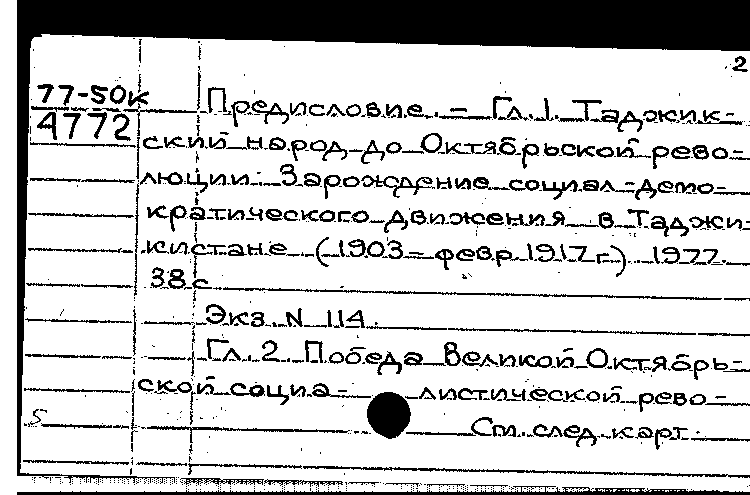 2
77-50к Предисловие. – Гл.1. Таджик-
4772 ский народ до Октябрьской рево-
люции. Зарождение социал-демо-
кратического движения в Таджи-
кистане (1903 – февр.1917 г.) 1977.
38 с
Экз. N 114.
Гл.2. Победа Великой Октябрь-
ской социа- листической рево-
См. след. карт.